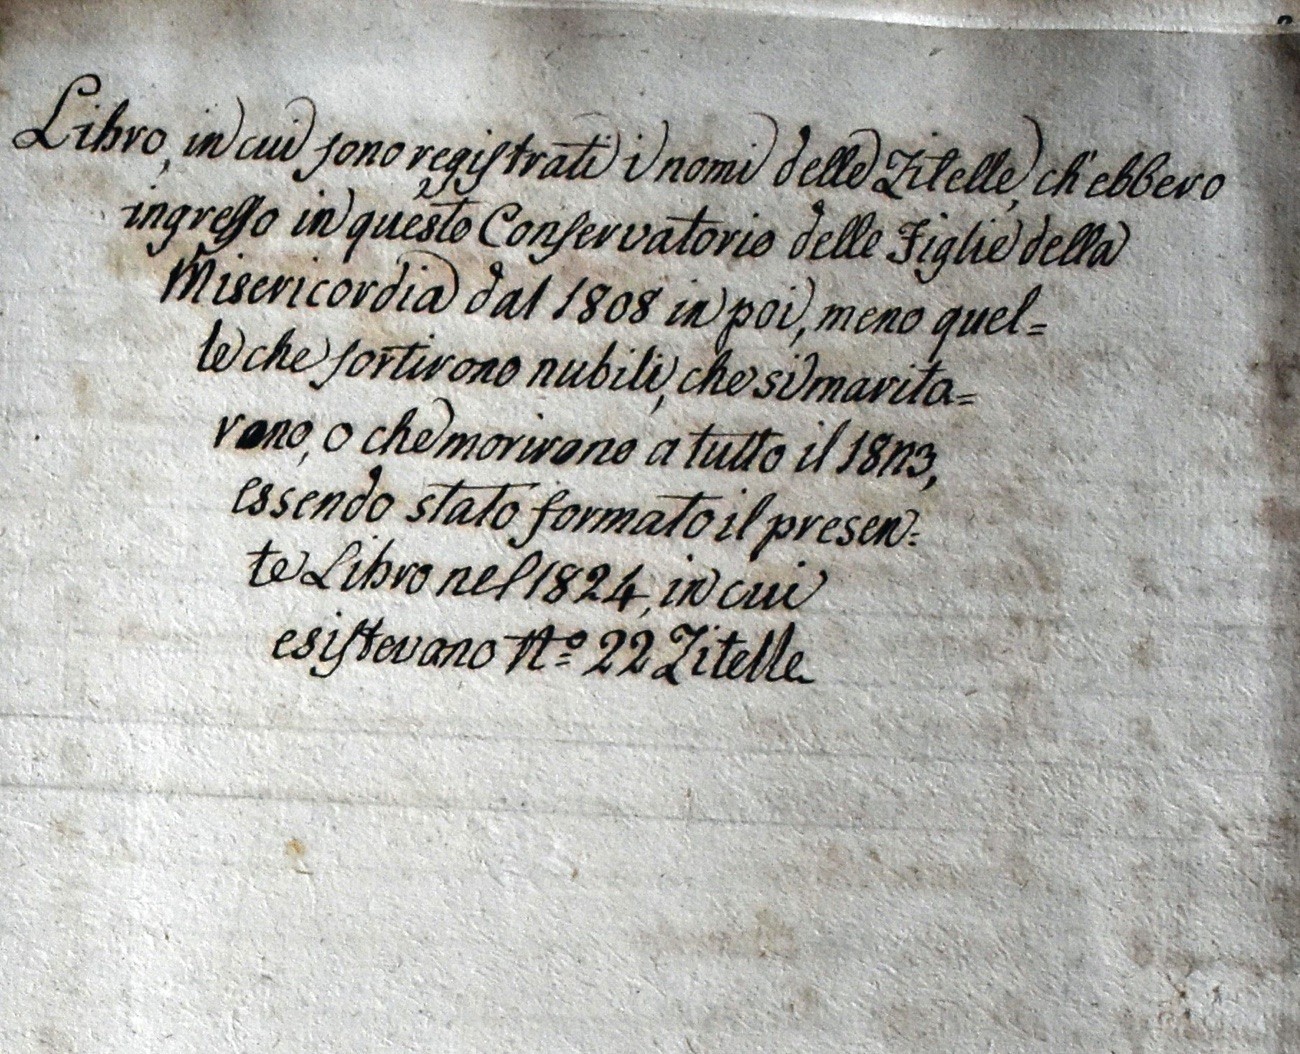 Libro, in cui sono registrati i nomi delle Zitelle, ch'ebbero
ingresso in questo Conservatorio delle Figlie della
Misericordia dal 1808 in poi, meno quel=
le che sortirono nubili, che si marita=
rono, o che morirono a tutto il
essendo stato formato il presen=
te Libro nel 1824, in cui
esistevano N.º 22 Zitelle